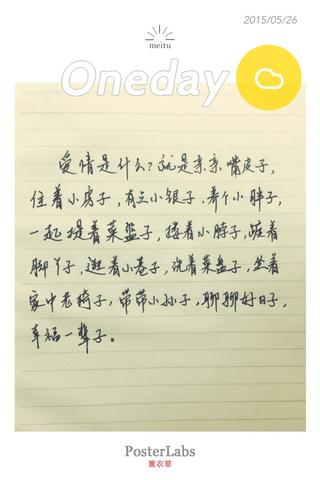 2015/05/26
meitu
Oneday
爱情是什么？就是亲亲嘴皮子，
住着小房子，有点小银子，养个小胖子，
一起提着菜篮子，搂着小脖子，踮着
脚丫子，逛着小巷子，洗着菜盘子，坐着
家中老椅子，带带小孙子，聊聊好日子，
幸福一辈子。
PosterLabs
薰衣草